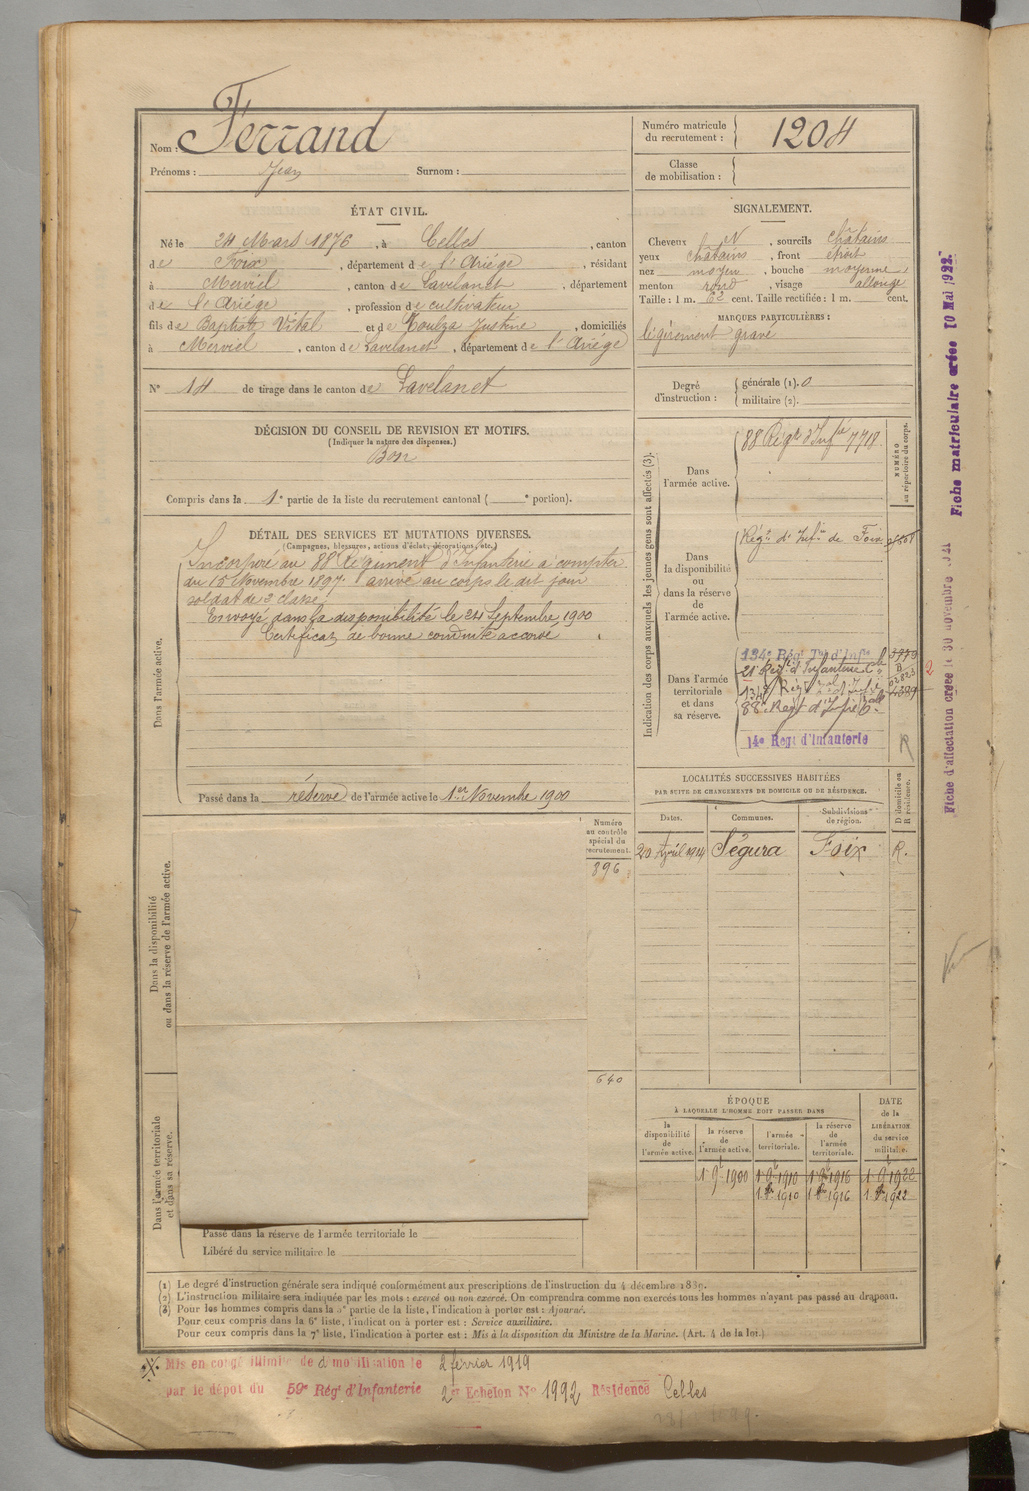 Nom : Ferrand
Prénoms : Jean Surnom :
Numéro matricule du recrutement : 1204
Classe de mobilisation :
ÉTAT CIVIL.
Né le 24 Mars 1876, à Celles, canton
de Foix, département de l'Ariége, résidant
à Merviel, canton de Lavelanet, département
de l'Ariége, profession de cultivateur
fils de Baptiste Vital et de Toulza Justine, domiciliés
à Merviel, canton de Lavelanet, département de l'Ariége
N° 14 de tirage dans le canton de Lavelanet
SIGNALEMENT.
Cheveux N, sourcils châtains
yeux châtains, front étroit
nez moyen, bouche moyenne,
menton rond, visage allongé
Taille : 1 m. 62 cent. Taille rectifiée : 1 m. cent.
MARQUES PARTICULIÈRES :
légèrement gravé
Degré d'instruction : générale (1). 0
militaire (2).
DÉCISION DU CONSEIL DE REVISION ET MOTIFS.
(Indiquer la nature des dispenses.)
Bon
Compris dans la 1e partie de la liste du recrutement cantonal ( e portion).
DÉTAIL DES SERVICES ET MUTATIONS DIVERSES.
(Campagnes, blessures, actions d'éclat, décorations, etc.)
Incorporé au 88e Régiment d'Infanterie à compter
du 15 Novembre 1897. arrivé au corps le dit jour
soldat de 2e classe.
Envoyé dans la disponibilité le 24 Septembre 1900
Certificat de bonne conduite accordé
Dans l'armée active.
Passé dans la réserve de l'armée active le 1er Novembre 1900
Indication des corps auxquels les jeunes gens sont affectés (3).
NUMÉRO au répertoire du corps.
Dans l'armée active.
88 Régt d'Infie 7718
Dans la disponibilité ou dans la réserve de l'armée active.
Régt d'Infie de Foix
Dans l'armée territoriale et dans sa réserve.
134e Régt Tal d'Infie
21e Régt d'Infanterie Cal
88e Regt d'Infie
14e Régt d'Infanterie
R
2
LOCALITÉS SUCCESSIVES HABITÉES
PAR SUITE DE CHANGEMENTS DE DOMICILE OU DE RÉSIDENCE.
D domicile ou R résidence.
Dates. Communes. Subdivisions de région.
20 Avril 1914 Ségura Foix R.
Numéro au contrôle spécial du recrutement.
896
640
Dans la disponibilité ou dans la réserve de l'armée active.
Dans l'armée territoriale et dans sa réserve.
ÉPOQUE
À LAQUELLE L'HOMME DOIT PASSER DANS
DATE de la LIBÉRATION du service militaire.
la disponibilité de l'armée active.
la réserve de l'armée active.
l'armée territoriale.
la réserve de l'armée territoriale.
1 9b 1900 1 9b 1910 1 9b 1916 1 9b 1922
1 8bre 1910 1 8bre 1916 1 8bre 1922
Passé dans la réserve de l'armée territoriale le
Libéré du service militaire le
(1) Le degré d'instruction générale sera indiqué conformément aux prescriptions de l'instruction du 4 décembre 1889.
(2) L'instruction militaire sera indiquée par les mots : exercé ou non exercé. On comprendra comme non exercés tous les hommes n'ayant pas passé au drapeau.
(3) Pour les hommes compris dans la 5e partie de la liste, l'indication à porter est : Ajourné.
Pour ceux compris dans la 6e liste, l'indication à porter est : Service auxiliaire.
Pour ceux compris dans la 7e liste, l'indication à porter est : Mis à la disposition du Ministre de la Marine. (Art. 4 de la loi.)
Mis en congé illimité de démobilisation le 2 février 1919
par le dépôt du 59e Régt d'Infanterie 2e Echelon No 1992 Résidence Celles
Fiche matriculaire créée 10 Mai 1922.
Fiche d'affectation créée le 30 novembre 1921